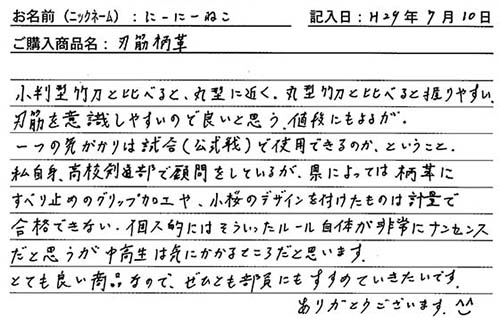 お名前（ニックネーム）：にーにーねこ 記入日：H29年7月10日
ご購入商品名：刃筋柄革
小判型竹刀と比べると、丸型に近く、丸型竹刀と比べると握りやすい。
刃筋を意識しやすいので良いと思う。値段にもよるが。
一つの気がかりは試合（公式戦）で使用できるのか、ということ。
私自身、高校剣道部で顧問をしているが、県によっては柄革に
すべり止めのグリップ加工や、小桜のデザインを付けたものは計量で
合格できない。個人的にはそういったルール自体が非常にナンセンス
だと思うが中高生は気にかかるところだと思います。
とても良い商品なので、ぜひとも部員にもすすめていきたいです。
ありがとうございます。^^